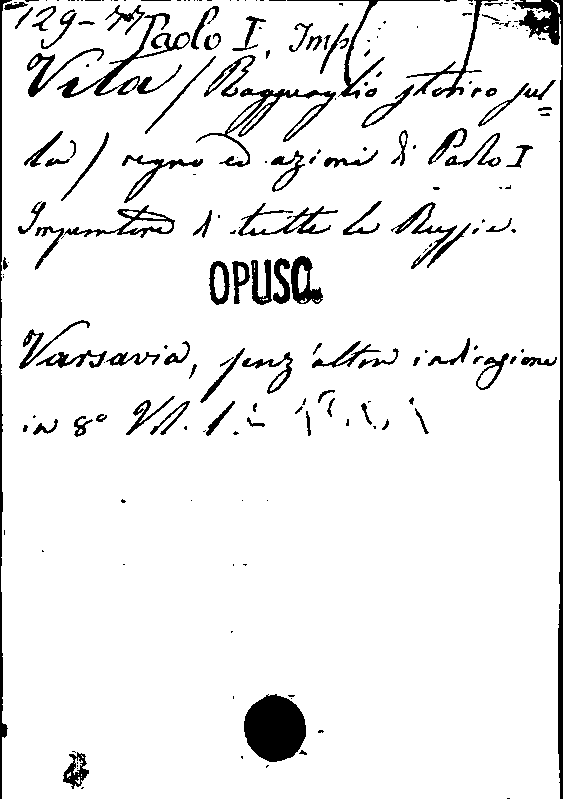 129-77 Paolo I, Imp.
Vita / Ragguaglio storico sul=
la / regno ed azioni di Paolo I
Imperatore di tutte le Russie.
OPUSC.
Varsavia, senz'altra indicazione
in 8° Vol. 1.